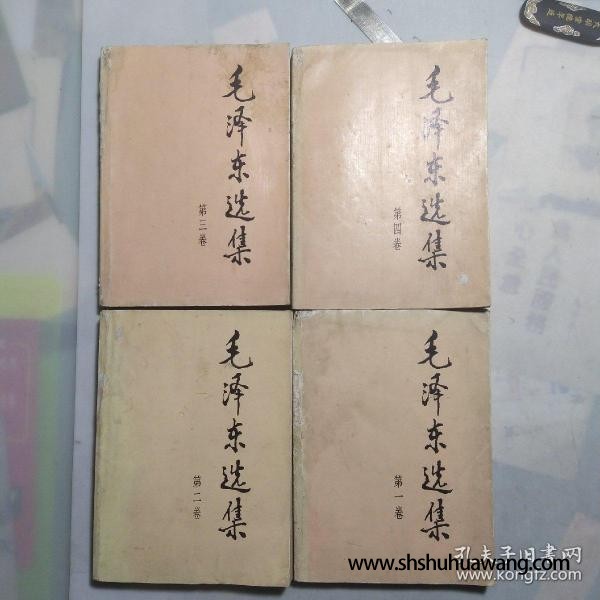 毛泽东选集
第三卷
毛泽东选集
第四卷
毛泽东选集
第二卷
毛泽东选集
第一卷
www.shshuhuawang.com
孔夫子旧书网
www.kongfz.com